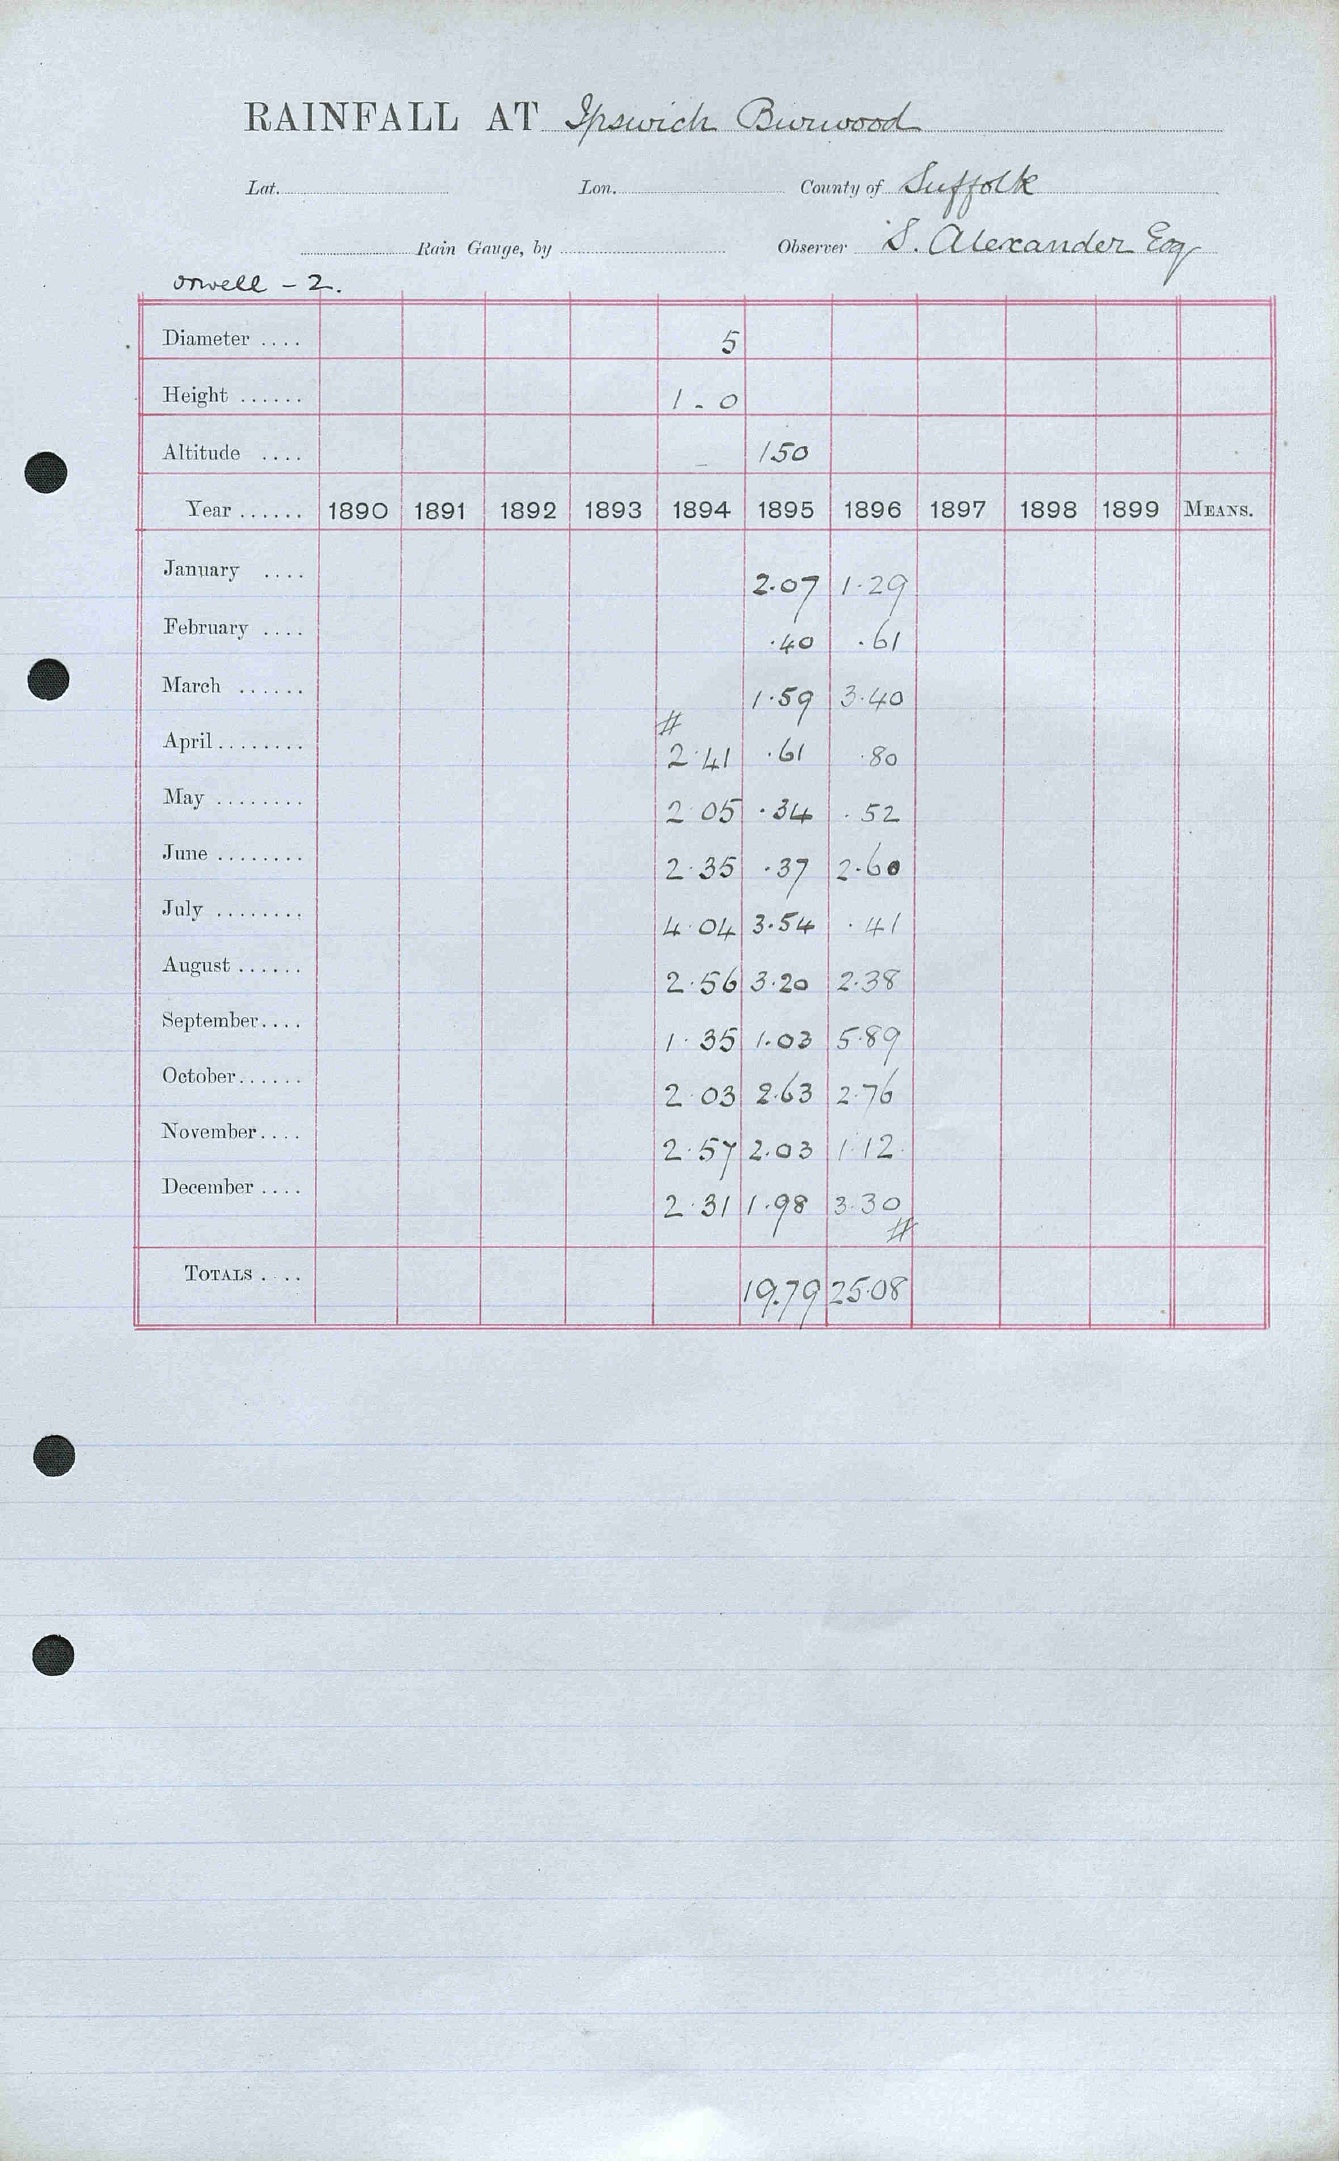 RAINFALL AT Ipswich Burwood
Lat. Lon. County of Suffolk
Rain Gauge, by Observer S. Alexander Esq
Orwell - 2.
Diameter .... 5
Height ...... 1 - 0
Altitude .... 150
Year ...... 1890 1891 1892 1893 1894 1895 1896 1897 1898 1899 MEANS.
January .... 2.07 1.29
February .... .40 .61
March ...... 1.59 3.40
#
April ........ 2.41 .61 .80
May ........ 2.05 .34 .52
June ........ 2.35 .37 2.60
July ........ 4.04 3.54 .41
August ...... 2.56 3.20 2.38
September.... 1.35 1.03 5.89
October...... 2.03 2.63 2.76
November.... 2.57 2.03 1.12
December .... 2.31 1.98 3.30
#
TOTALS .... 19.79 25.08